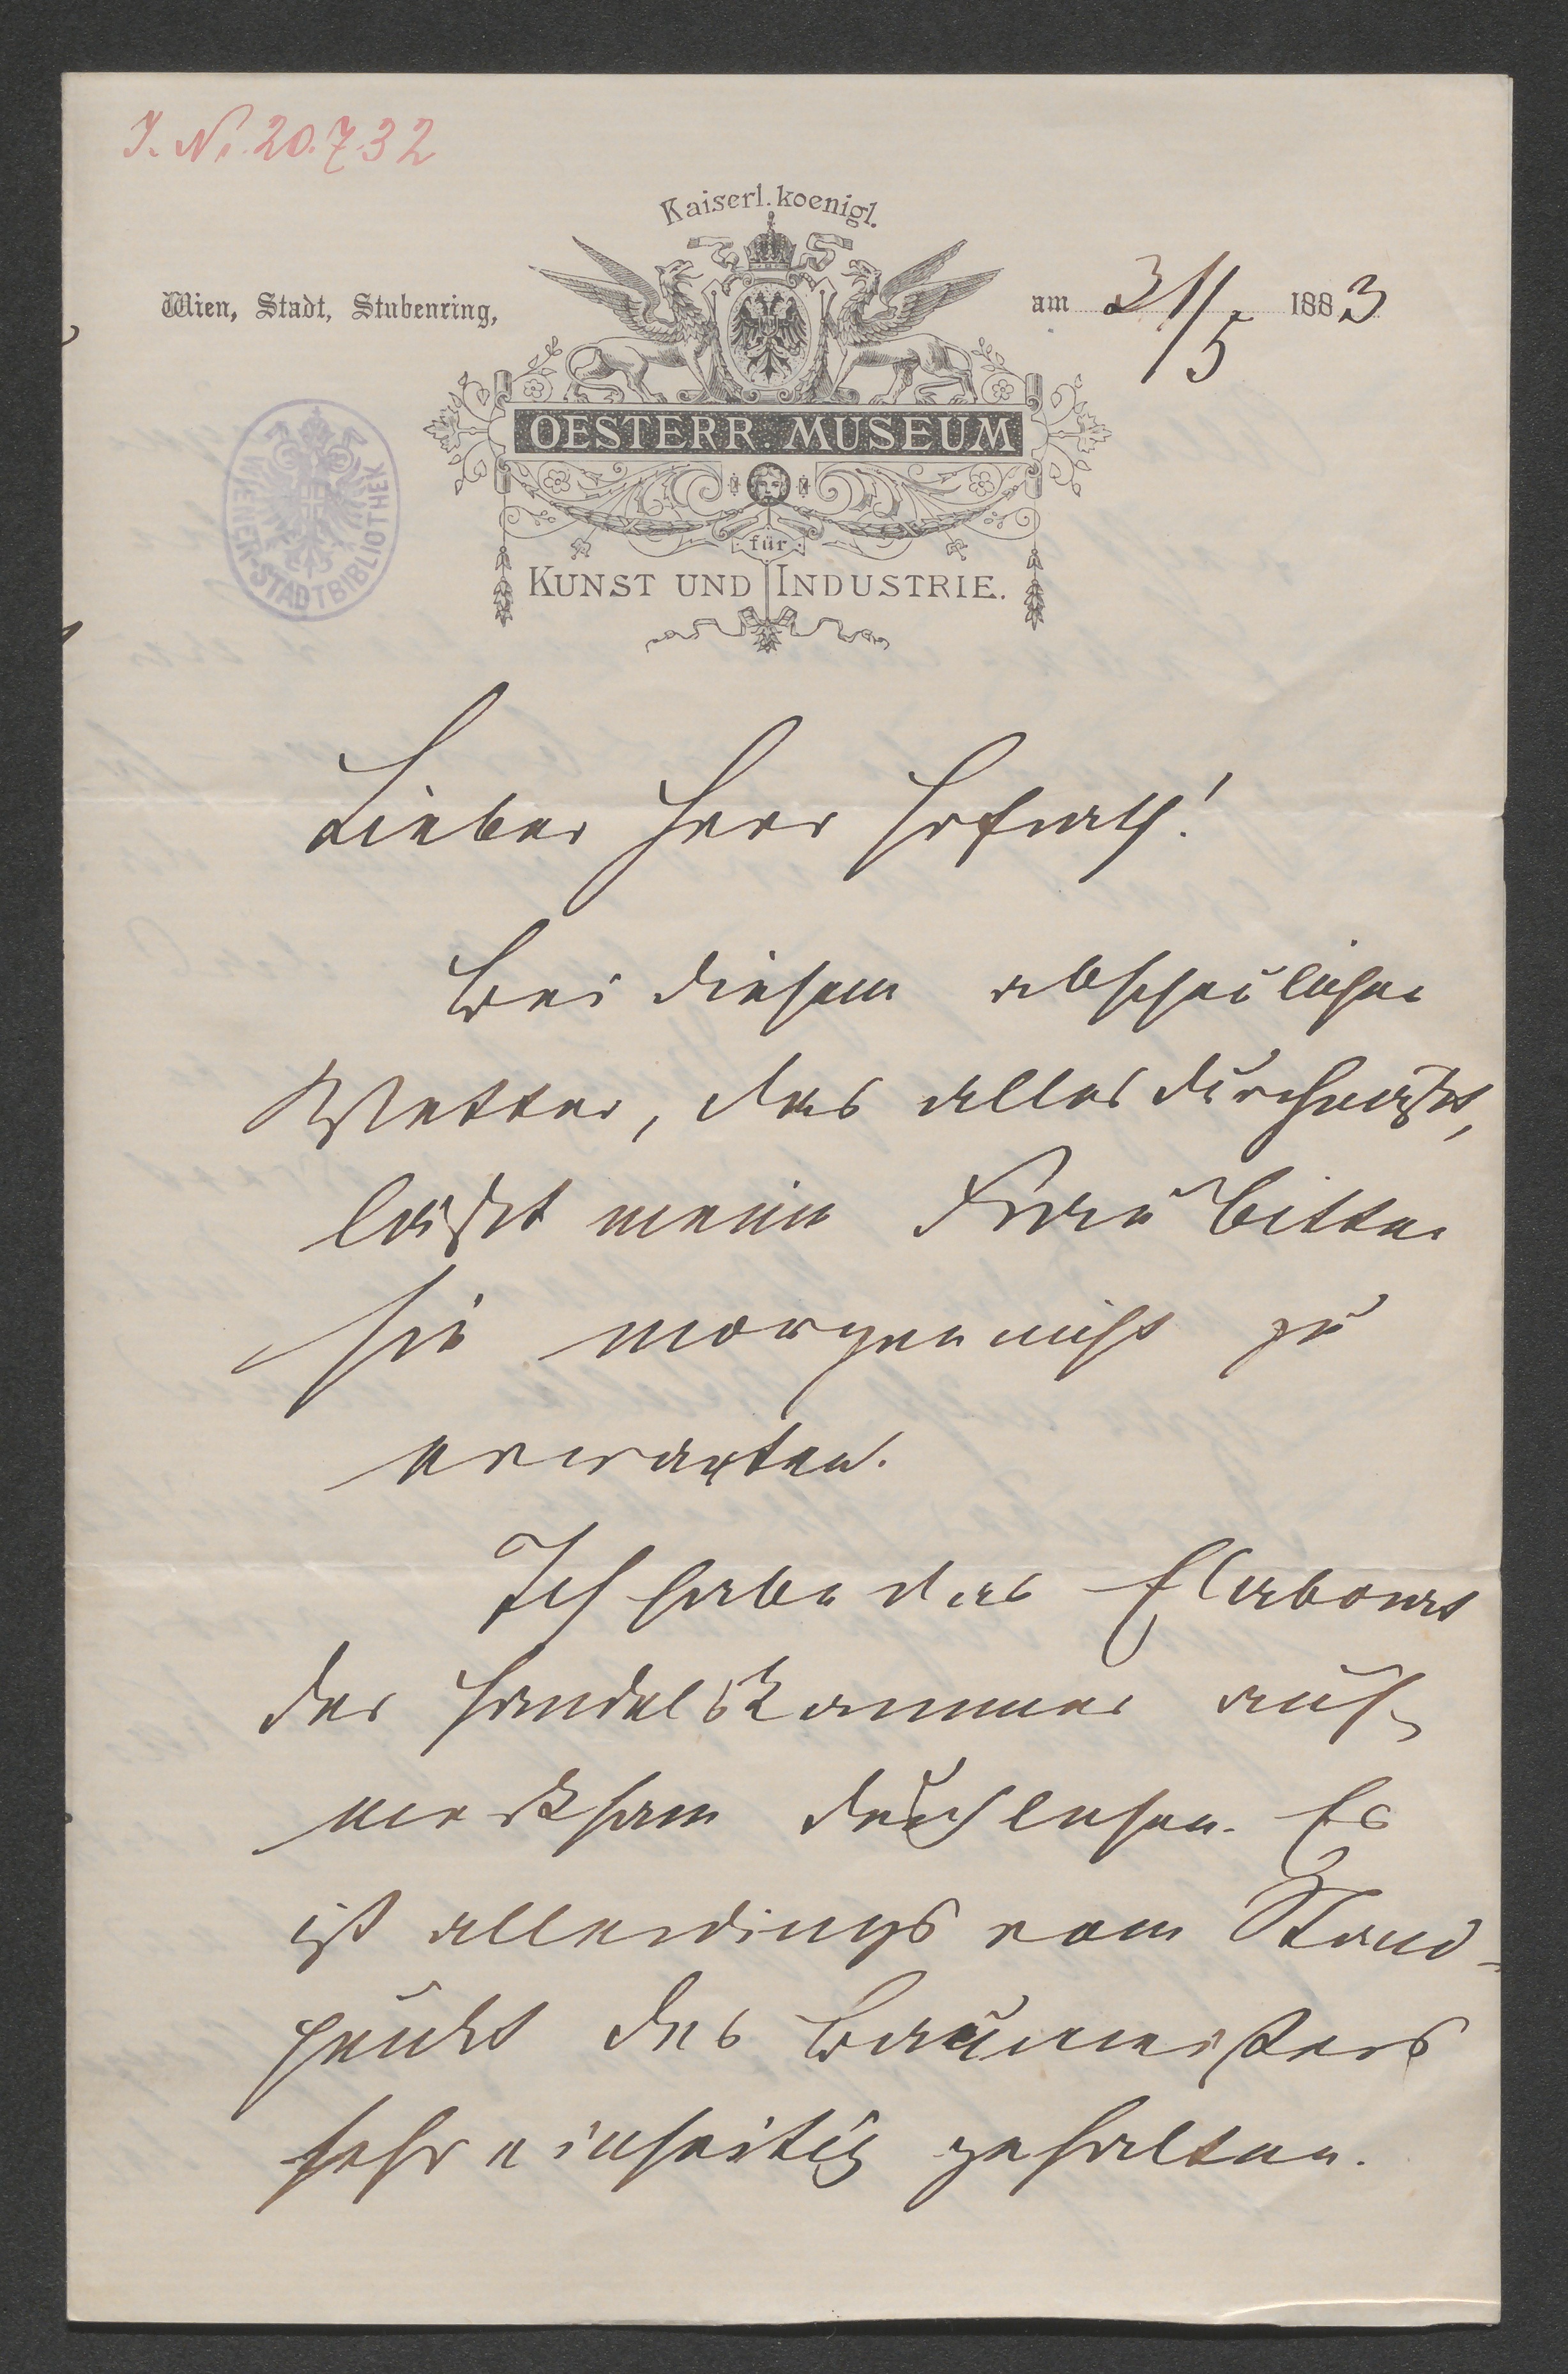 J. N. 20.732
Kaiserl. koenigl.
Wien, Stadt, Stubenring,
am 31/5 1883
OESTERR. MUSEUM
für
KUNST UND INDUSTRIE.
WIENER-STADTBIBLIOTHEK
Lieber Herr Hofrath!
Bei diesem abscheulichen
Wetter, das alles durchnäßt,
läßt meine Frau bitten
sie morgen nicht zu
erwarten.
Ich habe das Elaborat
der Handelskammer auf-
merksam durchlesen. Es
ist allerdings vom Stand-
punkt des Baumeisters
sehr einseitig gehalten.